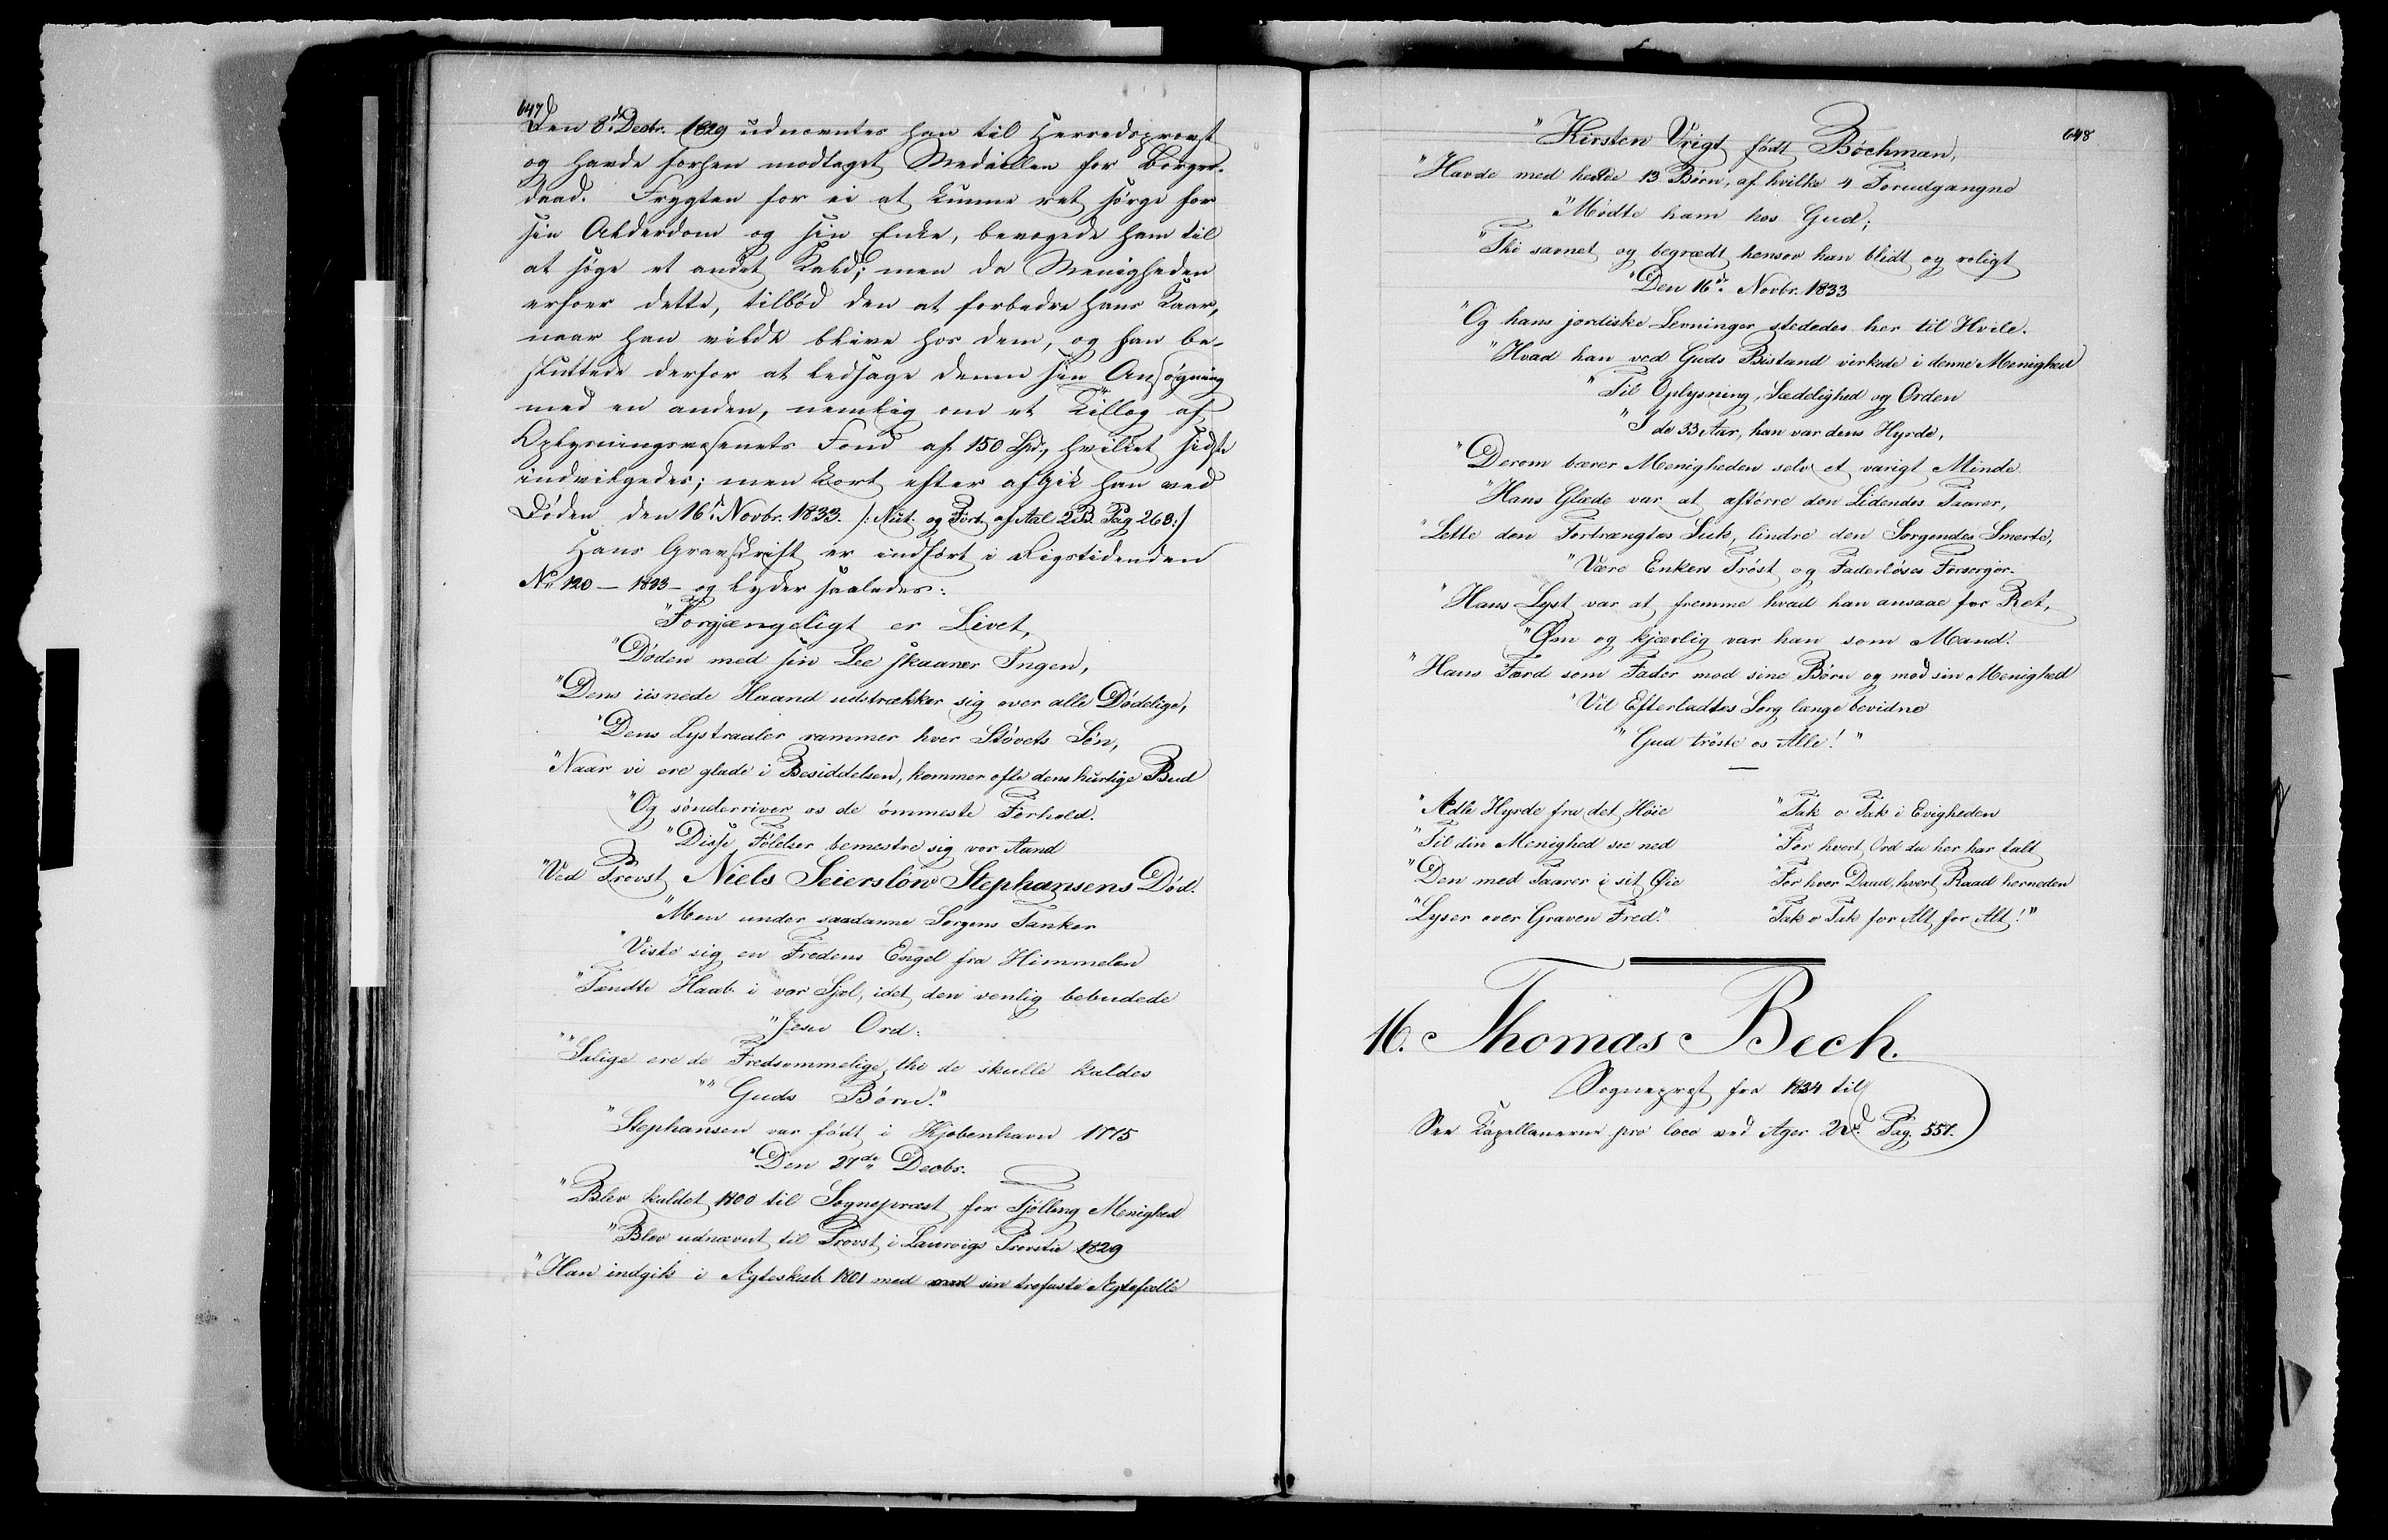 647
Den 8de Decbr. 1829 udnævntes han til Herredsprovst
og havde forhen modtaget Medaillen for Borger-
daad. Frygten for ei at kunne ret sørge for
sin Alderdom og sin Enke, bevægede ham til
at søge et andet Kald; men da Menigheden
erfoer dette, tilbød den at forbedre hans Kaar,
naar han vilde blive hos dem, og han be-
sluttede derfor at ledsage denne sin Ansøgning
med en anden, nemlig om et Tillæg af
Oplysningsvæsenets Fond af 150 Spd., hvilket sidste
indvilgedes; men kort efter afgik han ved
Døden den 16de Novbr. 1833. /: Nut. og Fort. af Aal 2 B. Pag 268:/
Hans Gravskrift er indført i Rigstidenden
No 120 - 1833 - og lyder saaledes:
"Forgjængeligt er Livet,
"Døden med sin Lee skaaner Ingen,
"Dens iisnede Haand udstrækker sig over alle Dødelige,
"Dens Lystraaler rammer hver Støvets Søn,
"Naar vi ere glade i Besiddelsen, kommer ofte dens hurtige Bud
"Og sønderriver os de ømmeste Forhold.
"Disse Følelser bemestre sig vor Aand
"Ved Provst Niels Seiersløw Stephansens Død.
"Men under saadanne Sorgens Tanker
"Viste sig en Fredens Engel fra Himmelen
"Tændte Haab i vor Sjel, idet den venlig bebudede
"Jesu Ord:
""Salige ere de Fredsommelige, thi de skulle kaldes
""Guds Børn."
"Stephansen var født i Kjøbenhavn 1775
"Den 27de Decbr.
"Blev kaldet 1800 til Sognepræst for Tjølling Menighed
"Blev udnævnt til Provst i Laurvigs Provstie 1829
"Han indgik i Ægteskab 1801 med sin trofaste Ægtefælle
648
"Kirsten Vrigt født Bøchman,
"Havde med hende 13 Børn, af hvilke 4 Forudgangne
"Mødte ham hos Gud;
"Thi savnet og begrædt hensov han blidt og roligt
"Den 16de Novbr. 1833
"Og hans jordiske Levninger stededes her til Hvile.
"Hvad han ved Guds Bistand virkede i denne Menighed
"Til Oplysning, Sædelighed og Orden
"I de 33 Aar, han var dens Hyrde,
"Derom bærer Menigheden selv et varigt Minde.
"Hans Glæde var at aftørre den Lidendes Taarer,
"Lette den Fortrængtes Suk, lindre den Sorgendes Smerte,
"Være Enkers Trøst og Faderløses Forsørger.
"Hans Lyst var at fremme hvad han ansaae for Ret,
"Øm og kjærlig var han som Mand.
"Hans Færd som Fader mod sine Børn og mod sin Menighed
"Vil Efterladtes Sorg længe bevidne
"Gud trøste os Alle!"
"Ædle Hyrde fra det Høie
"Til din Menighed see ned
"Den med Taarer i sit Øie
"Lyser over Graven Fred."
"Tak o Tak i Evigheden
"For hvert Ord du her har talt
"For hver Daad, hvert Raad herneden
"Tak o Tak for Alt for Alt!"
16. Thomas Bech.
Sognepræst fra 1834 til
See Kapellanerne pro loco ved Ager 2 Pag. 557.